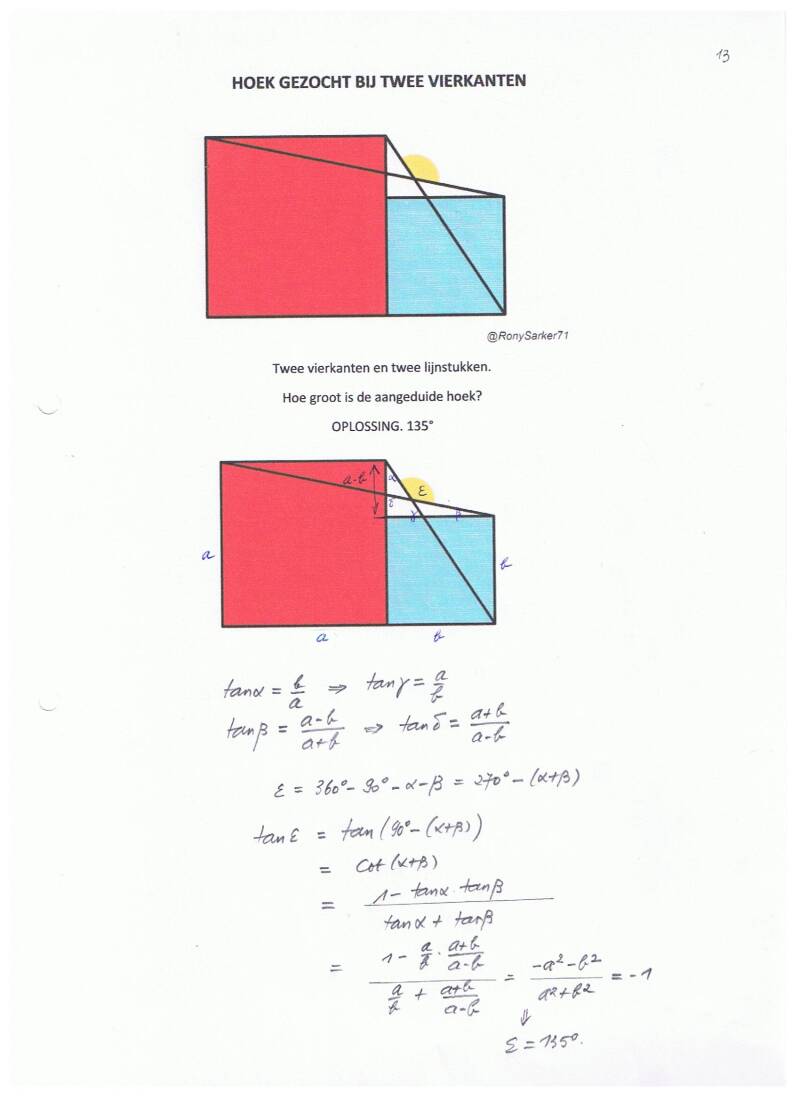 13
HOEK GEZOCHT BIJ TWEE VIERKANTEN
@RonySarker71
Twee vierkanten en twee lijnstukken.
Hoe groot is de aangeduide hoek?
OPLOSSING. 135°
a-b α ε
δ γ β
a b
a b
tanα = b/a ⇒ tanγ = a/b
tanβ = (a-b)/(a+b) ⇒ tanδ = (a+b)/(a-b)
ε = 360° - 90° - α - β = 270° - (α+β)
tan ε = tan(90° - (α+β))
= Cot(α+β)
= (1 - tanα . tanβ)/(tanα + tanβ)
= (1 - a/b . (a+b)/(a-b))/(a/b + (a+b)/(a-b)) = (-a² - b²)/(a² + b²) = -1
⇓
ε = 135°.